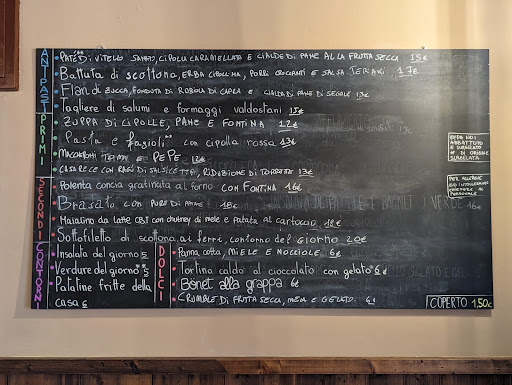 ANTIPASTI
PATÈ DI VITELLO SANATO, CIPOLLA CARAMELLATA E CIALDE DI PANE ALLA FRUTTA SECCA 15€
Battuta di scottona, ERBA CIPOLLINA, PORRI CROCCANTI E SALSA TERIAKI 17€
Flan DI ZUCCA, FONDUTA DI ROBIOLA DI CAPRA E CIALDA DI PANE DI SEGALE 13€
Tagliere di salumi e formaggi valdostani 15€
PRIMI
ZUPPA DI CIPOLLE, PANE E FONTINA 12€
Pasta e fagioli** con cipolla rossa 13€
E PEPE 12€
CASARECCE CON RAGÙ DI SALSICCIA, RIDUZIONE DI TORRETTE 13€
SECONDI
Polenta concia gratinata al forno CON FONTINA 16€
Brasato CON PURÈ DI PATATE 18€
Maialino da latte CBT con chutney di mele e patata al cartoccio 18€
Sottofiletto di scottona ai ferri, contorno del giorno 20€
CONTORNI
Insalata del giorno 5
Verdure del giorno* 5
Patatine fritte della
casa 6
DOLCI
Panna cotta, MIELE E NOCCIOLE 6€
Tortino caldo al cioccolato con gelato 6€
Bonet alla grappa 6€
CRUMBLE DI FRUTTA SECCA, MELA E GELATO 6€
DA NOI
ABBATTUTO
E SURGELATO
** DI ORIGINE
SURGELATA
PER ALLERGIE
ED INTOLLERANZE
CHIEDERE AL
PERSONALE
COPERTO 1,50€